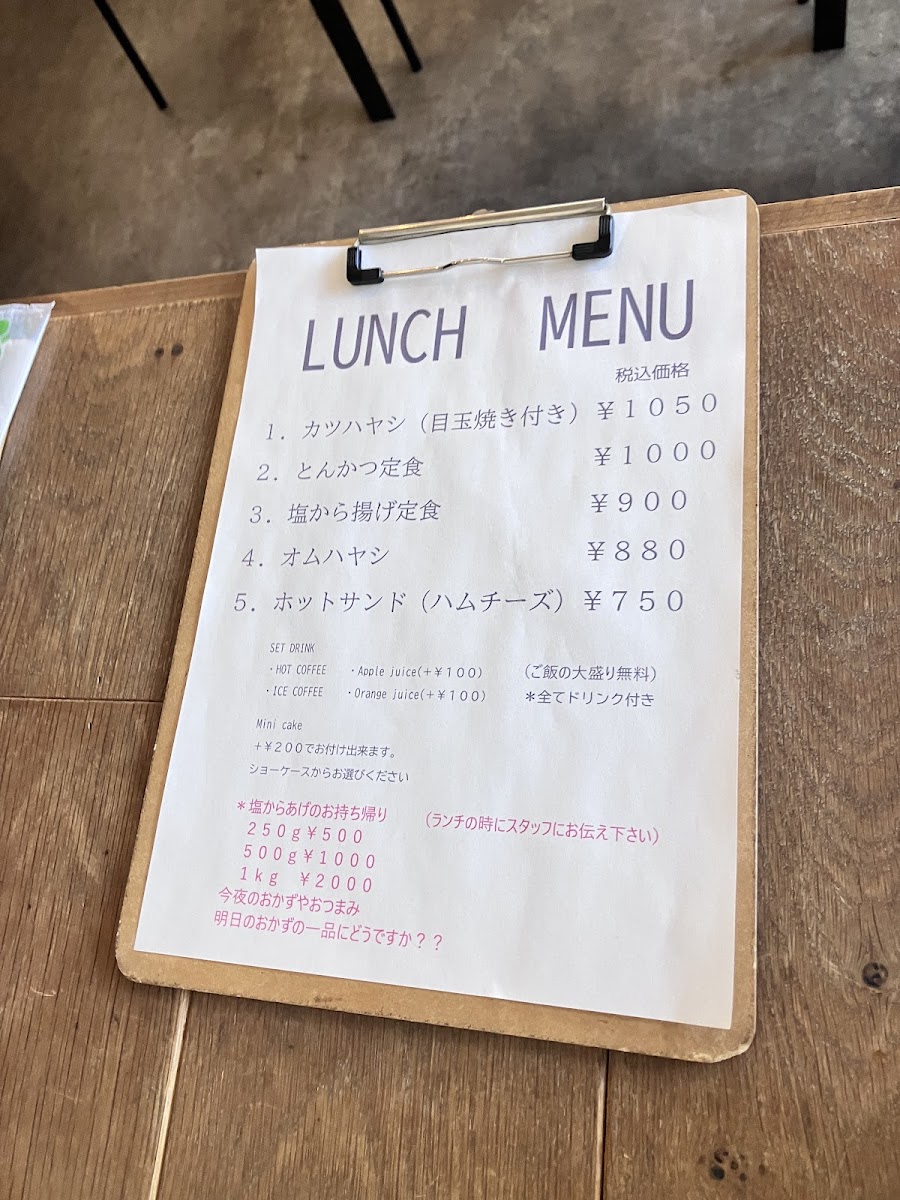 LUNCH MENU
税込価格
1．カツハヤシ（目玉焼き付き）￥1050
2．とんかつ定食 ￥1000
3．塩から揚げ定食 ￥900
4．オムハヤシ ￥880
5．ホットサンド（ハムチーズ）￥750
SET DRINK
・HOT COFFEE ・Apple juice(＋￥100) （ご飯の大盛り無料）
・ICE COFFEE ・Orange juice(＋￥100) ＊全てドリンク付き
Mini cake
＋￥200でお付け出来ます。
ショーケースからお選びください
＊塩からあげのお持ち帰り （ランチの時にスタッフにお伝え下さい）
250ｇ￥500
500ｇ￥1000
1ｋｇ ￥2000
今夜のおかずやおつまみ
明日のおかずの一品にどうですか？？